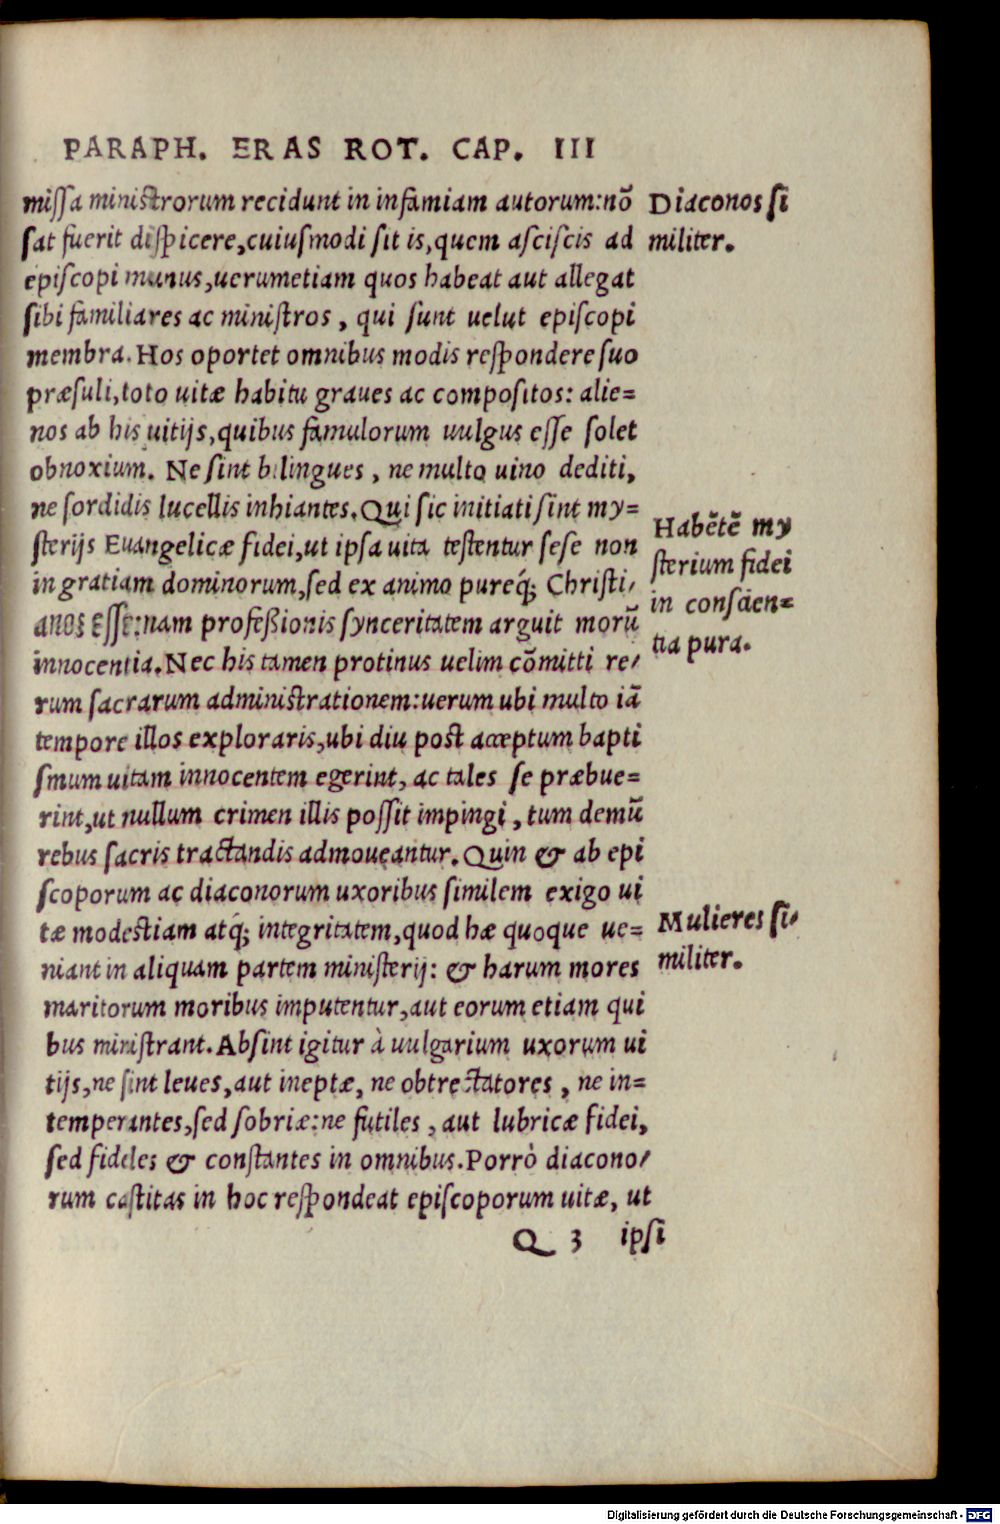 PARAPH. ERAS ROT. CAP. III
missa ministrorum recidunt in infamiam autorum:nõ
sat fuerit dispicere,cuiusmodi sit is,quem asciscis ad
episcopi munus,uerumetiam quos habeat aut allegat
sibi familiares ac ministros, qui sunt uelut episcopi
membra. Hos oportet omnibus modis respondere suo
præsuli,toto uitæ habitu graues ac compositos: alie=
nos ab his uitijs,quibus famulorum uulgus esse solet
obnoxium. Ne sint bilingues, ne multo uino dediti,
ne sordidis lucellis inhiantes. Qui sic initiati sint my=
sterijs Euangelicæ fidei,ut ipsa uita testentur sese non
in gratiam dominorum,sed ex animo pureq́; Christi/
anos esse:nam profeßionis synceritatem arguit morũ
innocentia. Nec his tamen protinus uelim cõmitti re/
rum sacrarum administrationem:uerum ubi multo iã
tempore illos exploraris,ubi diu post acceptum bapti
smum uitam innocentem egerint, ac tales se præbue=
rint,ut nullum crimen illis possit impingi, tum demũ
rebus sacris tractandis admoueantur. Quin & ab epi
scoporum ac diaconorum uxoribus similem exigo ui
tæ modestiam atq́; integritatem,quod hæ quoque ue=
niant in aliquam partem ministerij: & harum mores
maritorum moribus imputentur,aut eorum etiam qui
bus ministrant. Absint igitur à uulgarium uxorum ui
tijs,ne sint leues,aut ineptæ, ne obtrectatores, ne in=
temperantes,sed sobriæ:ne futiles, aut lubricæ fidei,
sed fideles & constantes in omnibus. Porrò diacono/
rum castitas in hoc respondeat episcoporum uitæ, ut
Q 3 ipsi
Diaconos si
militer.
Habẽtẽ my
sterium fidei
in conscien=
tia pura.
Mulieres si/
militer.
Digitalisierung gefördert durch die Deutsche Forschungsgemeinschaft - DFG